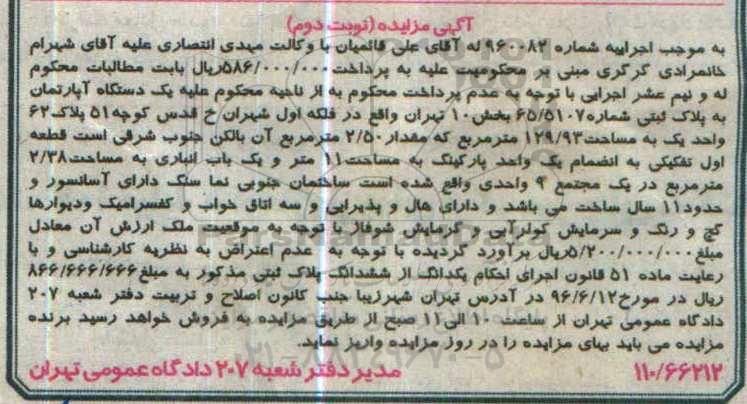 آگهی مزایده (نوبت دوم)
به موجب اجراییه شماره ۹۶۰۰۸۲ له آقای علی قائمیان با وکالت مهدی انتصاری علیه آقای شهرام
خانمرادی گرگری مبنی بر محکومیت علیه به پرداخت ۵۸۶/۰۰۰/۰۰۰ریال بابت مطالبات محکوم
له و نیم عشر اجرایی با توجه به عدم پرداخت محکوم به از ناحیه محکوم علیه یک دستگاه آپارتمان
به پلاک ثبتی شماره ۶۵/۵۱۰۷ بخش ۱۰ تهران واقع در فلکه اول شهران خ قدس کوچه ۵۱ پلاک ۶۲
واحد یک به مساحت ۱۲۹/۹۳ مترمربع که مقدار ۲/۵۰ مترمربع آن بالکن جنوب شرقی است قطعه
اول تفکیکی به انضمام یک واحد پارکینگ به مساحت ۱۱ متر و یک باب انباری به مساحت ۲/۳۸
مترمربع در یک مجتمع ۹ واحدی واقع شده است ساختمان جنوبی نما سنگ دارای آسانسور و
حدود ۱۱ سال ساخت می باشد و دارای هال و پذیرایی و سه اتاق خواب و کفسرامیک ودیوارها
گچ و رنگ و سرمایش کولرآبی و گرمایش شوفاژ با توجه به موقعیت ملک ارزش آن معادل
مبلغ ۵/۲۰۰/۰۰۰/۰۰۰ریال برآورد گردیده با توجه به عدم اعتراض به نظریه کارشناسی و با
رعایت ماده ۵۱ قانون اجرای احکام یکدانگ از ششدانگ پلاک ثبتی مذکور به مبلغ ۸۶۶/۶۶۶/۶۶۶
ریال در مورخ ۹۶/۶/۱۲ در آدرس تهران شهرزیبا جنب کانون اصلاح و تربیت دفتر شعبه ۲۰۷
دادگاه عمومی تهران از ساعت ۱۰ الی ۱۱ صبح از طریق مزایده به فروش خواهد رسید برنده
مزایده می باید بهای مزایده را در روز مزایده واریز نماید.
۱۱۰/۶۶۲۱۲ مدیر دفتر شعبه ۲۰۷ دادگاه عمومی تهران